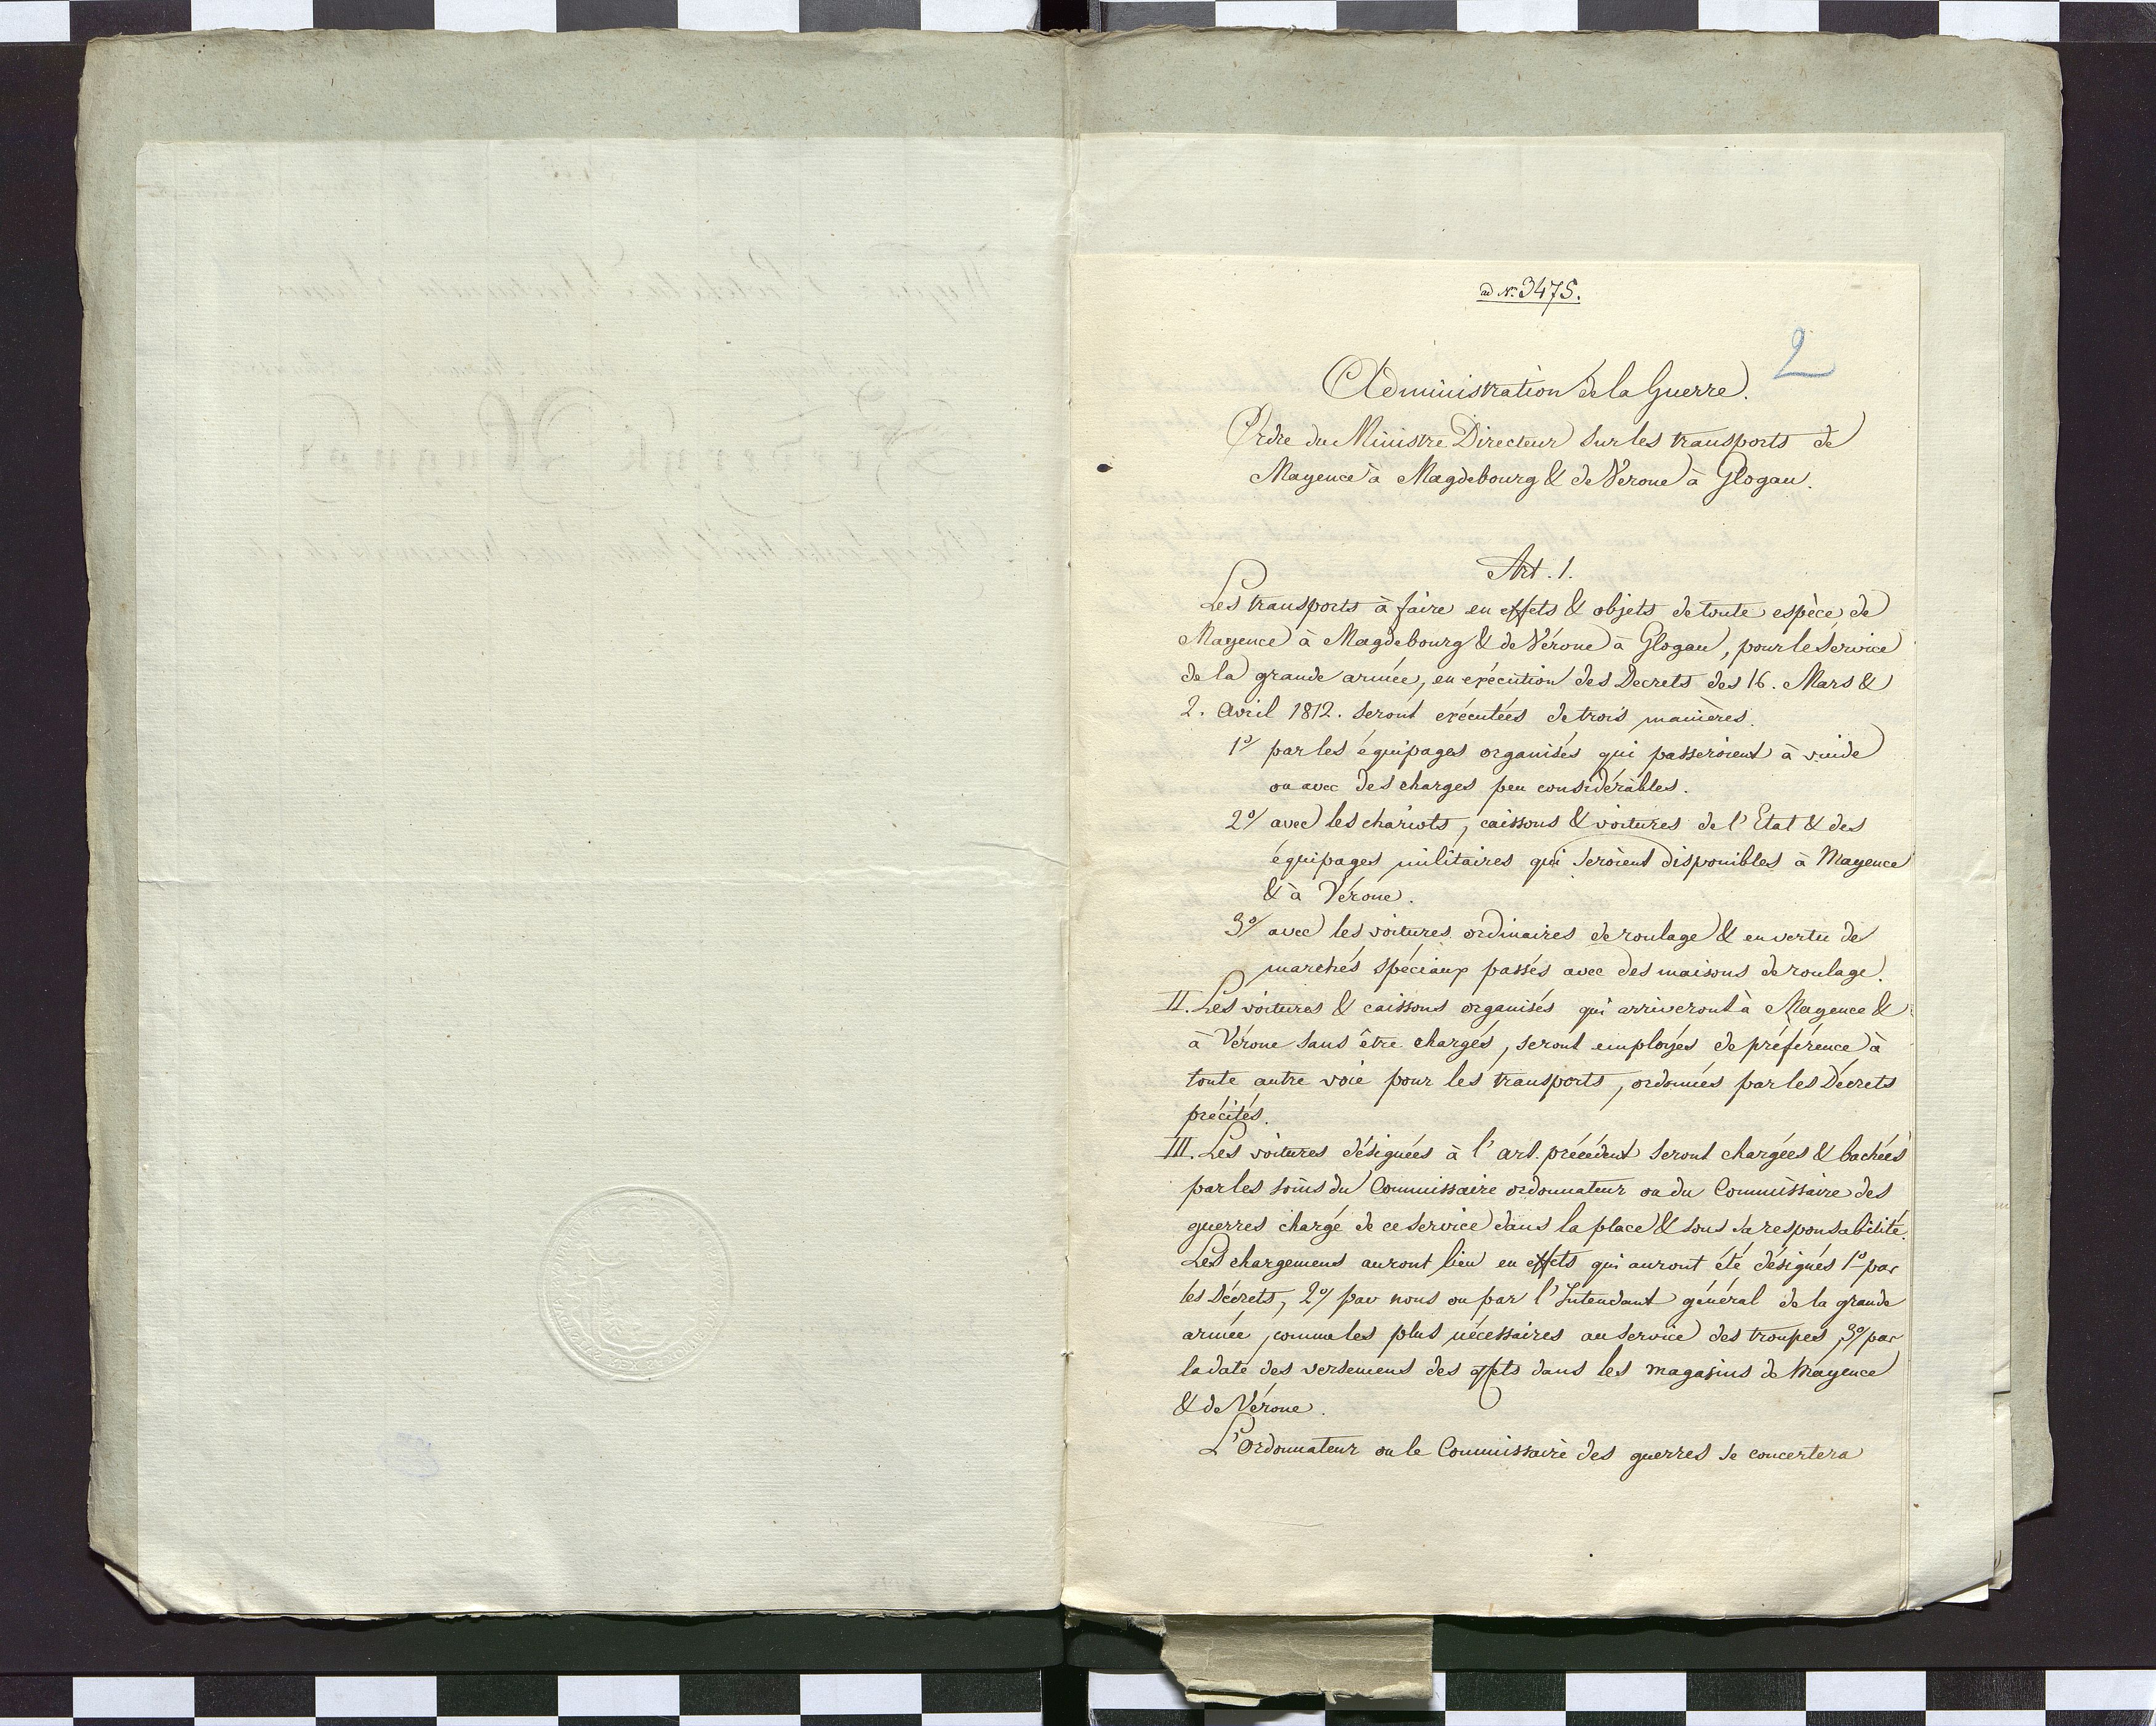 ad N.° 3475.
2
Administration de la Guerre.
Ordre du Ministre Directeur sur les transports de
Mayence à Magdebourg & de Verone à Glogau.
Art. 1.
Les transports à faire en effets & objets de toute espèce, de
Mayence à Magdebourg & de Vérone à Glogau, pour le Service
de la grande armée, en exécution des Decrets des 16. Mars &
2. Avril 1812. seront exécutées de trois manières.
1°/ par les équipages organisés qui passeroient à vuide
ou avec des charges peu considérables.
2°/ avec les chariots, caissons & voitures de l'Etat & des
équipages militaires qui seroient disponibles à Mayence
& à Vérone.
3°/ avec les voitures ordinaires de roulage & en vertu de
marchés spéciaux passés avec des maisons de roulage.
II. Les voitures & caissons organisés qui arriveront à Mayence &
à Vérone sans être chargés, seront employés de préférence à
toute autre voie pour les transports, ordonnés par les Décrets
précités.
III. Les voitures désignées à l'art. précédent seront chargées & bachées
par les soins du Commissaire ordonnateur ou du Commissaire des
guerres chargé de ce service dans la place & sous sa responsabilité.
Les chargemens auront lieu en effets qui auront été désignés 1° par
les Décrets, 2°/ par nous ou par l'Intendant général de la grande
armée, comme les plus nécessaires au service des troupes, 3°/ par
la date des versemens des effets dans les magasins de Mayence
& de Vérone.
L'Ordonnateur ou le Commissaire des guerres se concertera